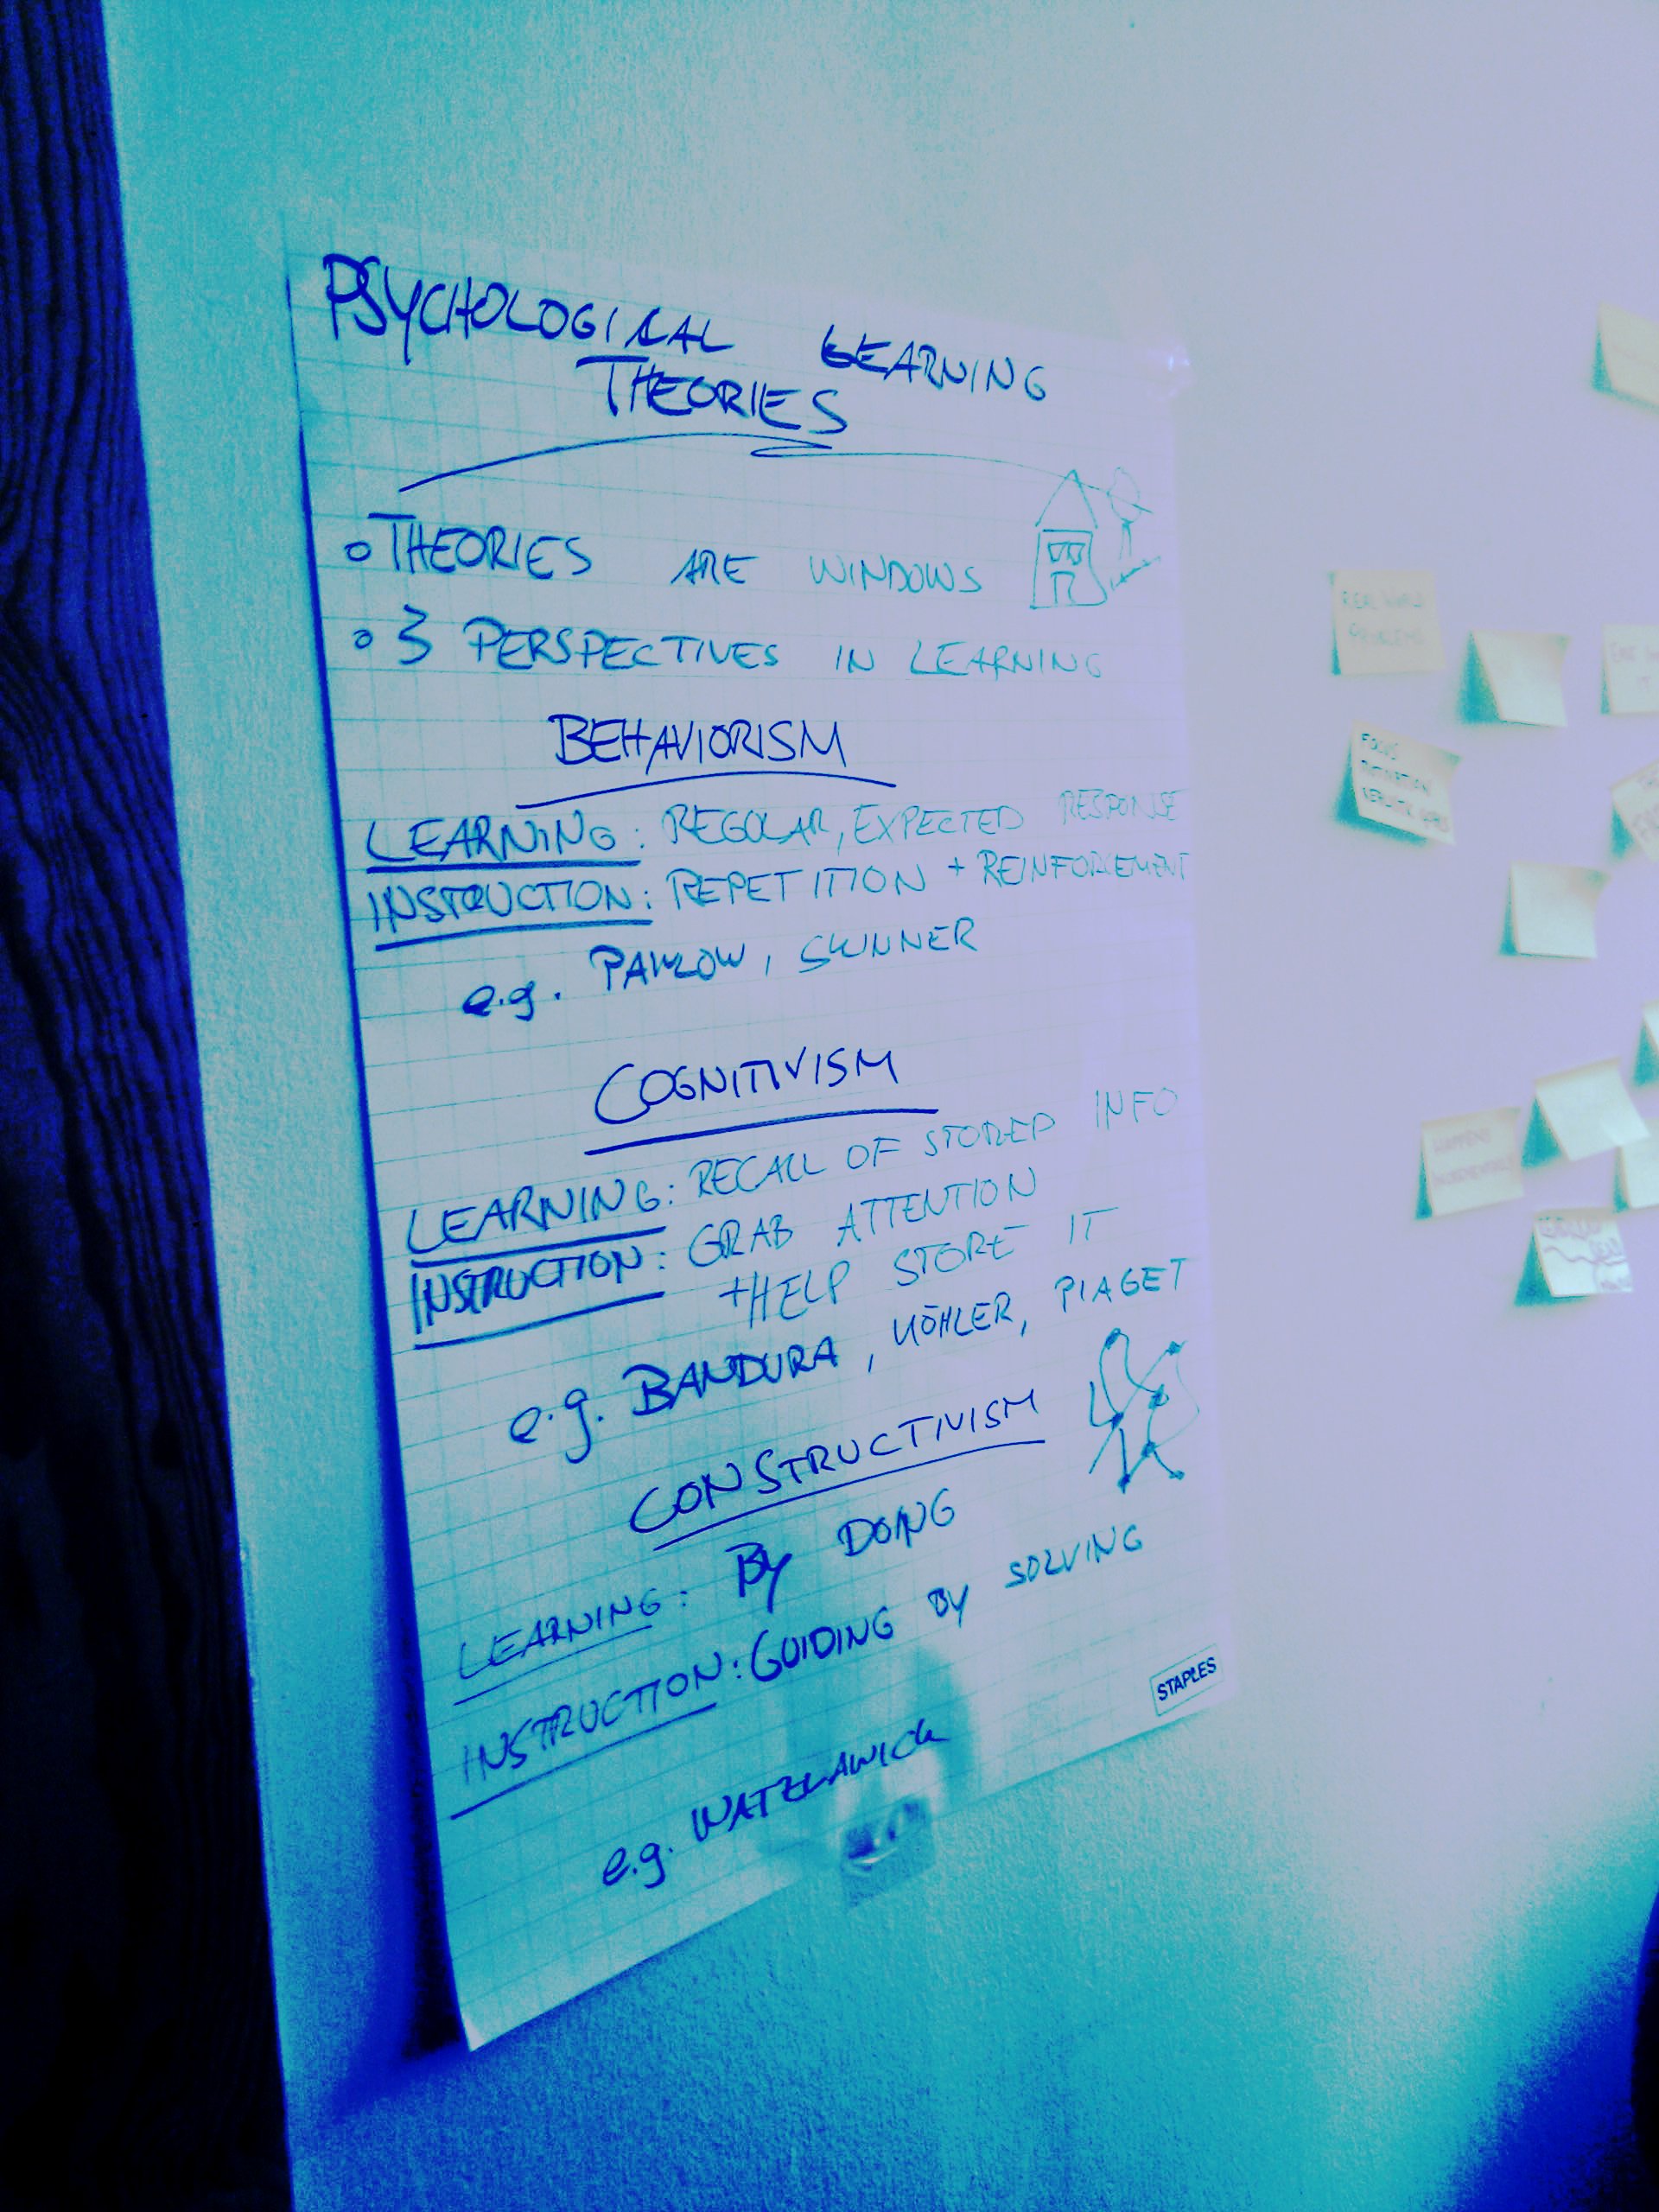 PSYCHOLOGICAL LEARNING
THEORIES
o THEORIES ARE WINDOWS
o 3 PERSPECTIVES IN LEARNING
BEHAVIORISM
LEARNING: REGULAR, EXPECTED RESPONSE
INSTRUCTION: REPETITION + REINFORCEMENT
e.g. PAWLOW, SKINNER
COGNITIVISM
LEARNING: RECALL OF STORED INFO
INSTRUCTION: GRAB ATTENTION
+ HELP STORE IT
e.g. BANDURA, KÖHLER, PIAGET
CONSTRUCTIVISM
LEARNING: BY DOING
INSTRUCTION: GUIDING BY SOLVING
e.g. WATZLAWICK
STAPLES
REAL WORLD
PROBLEMS
FOCUS
HAPPENS